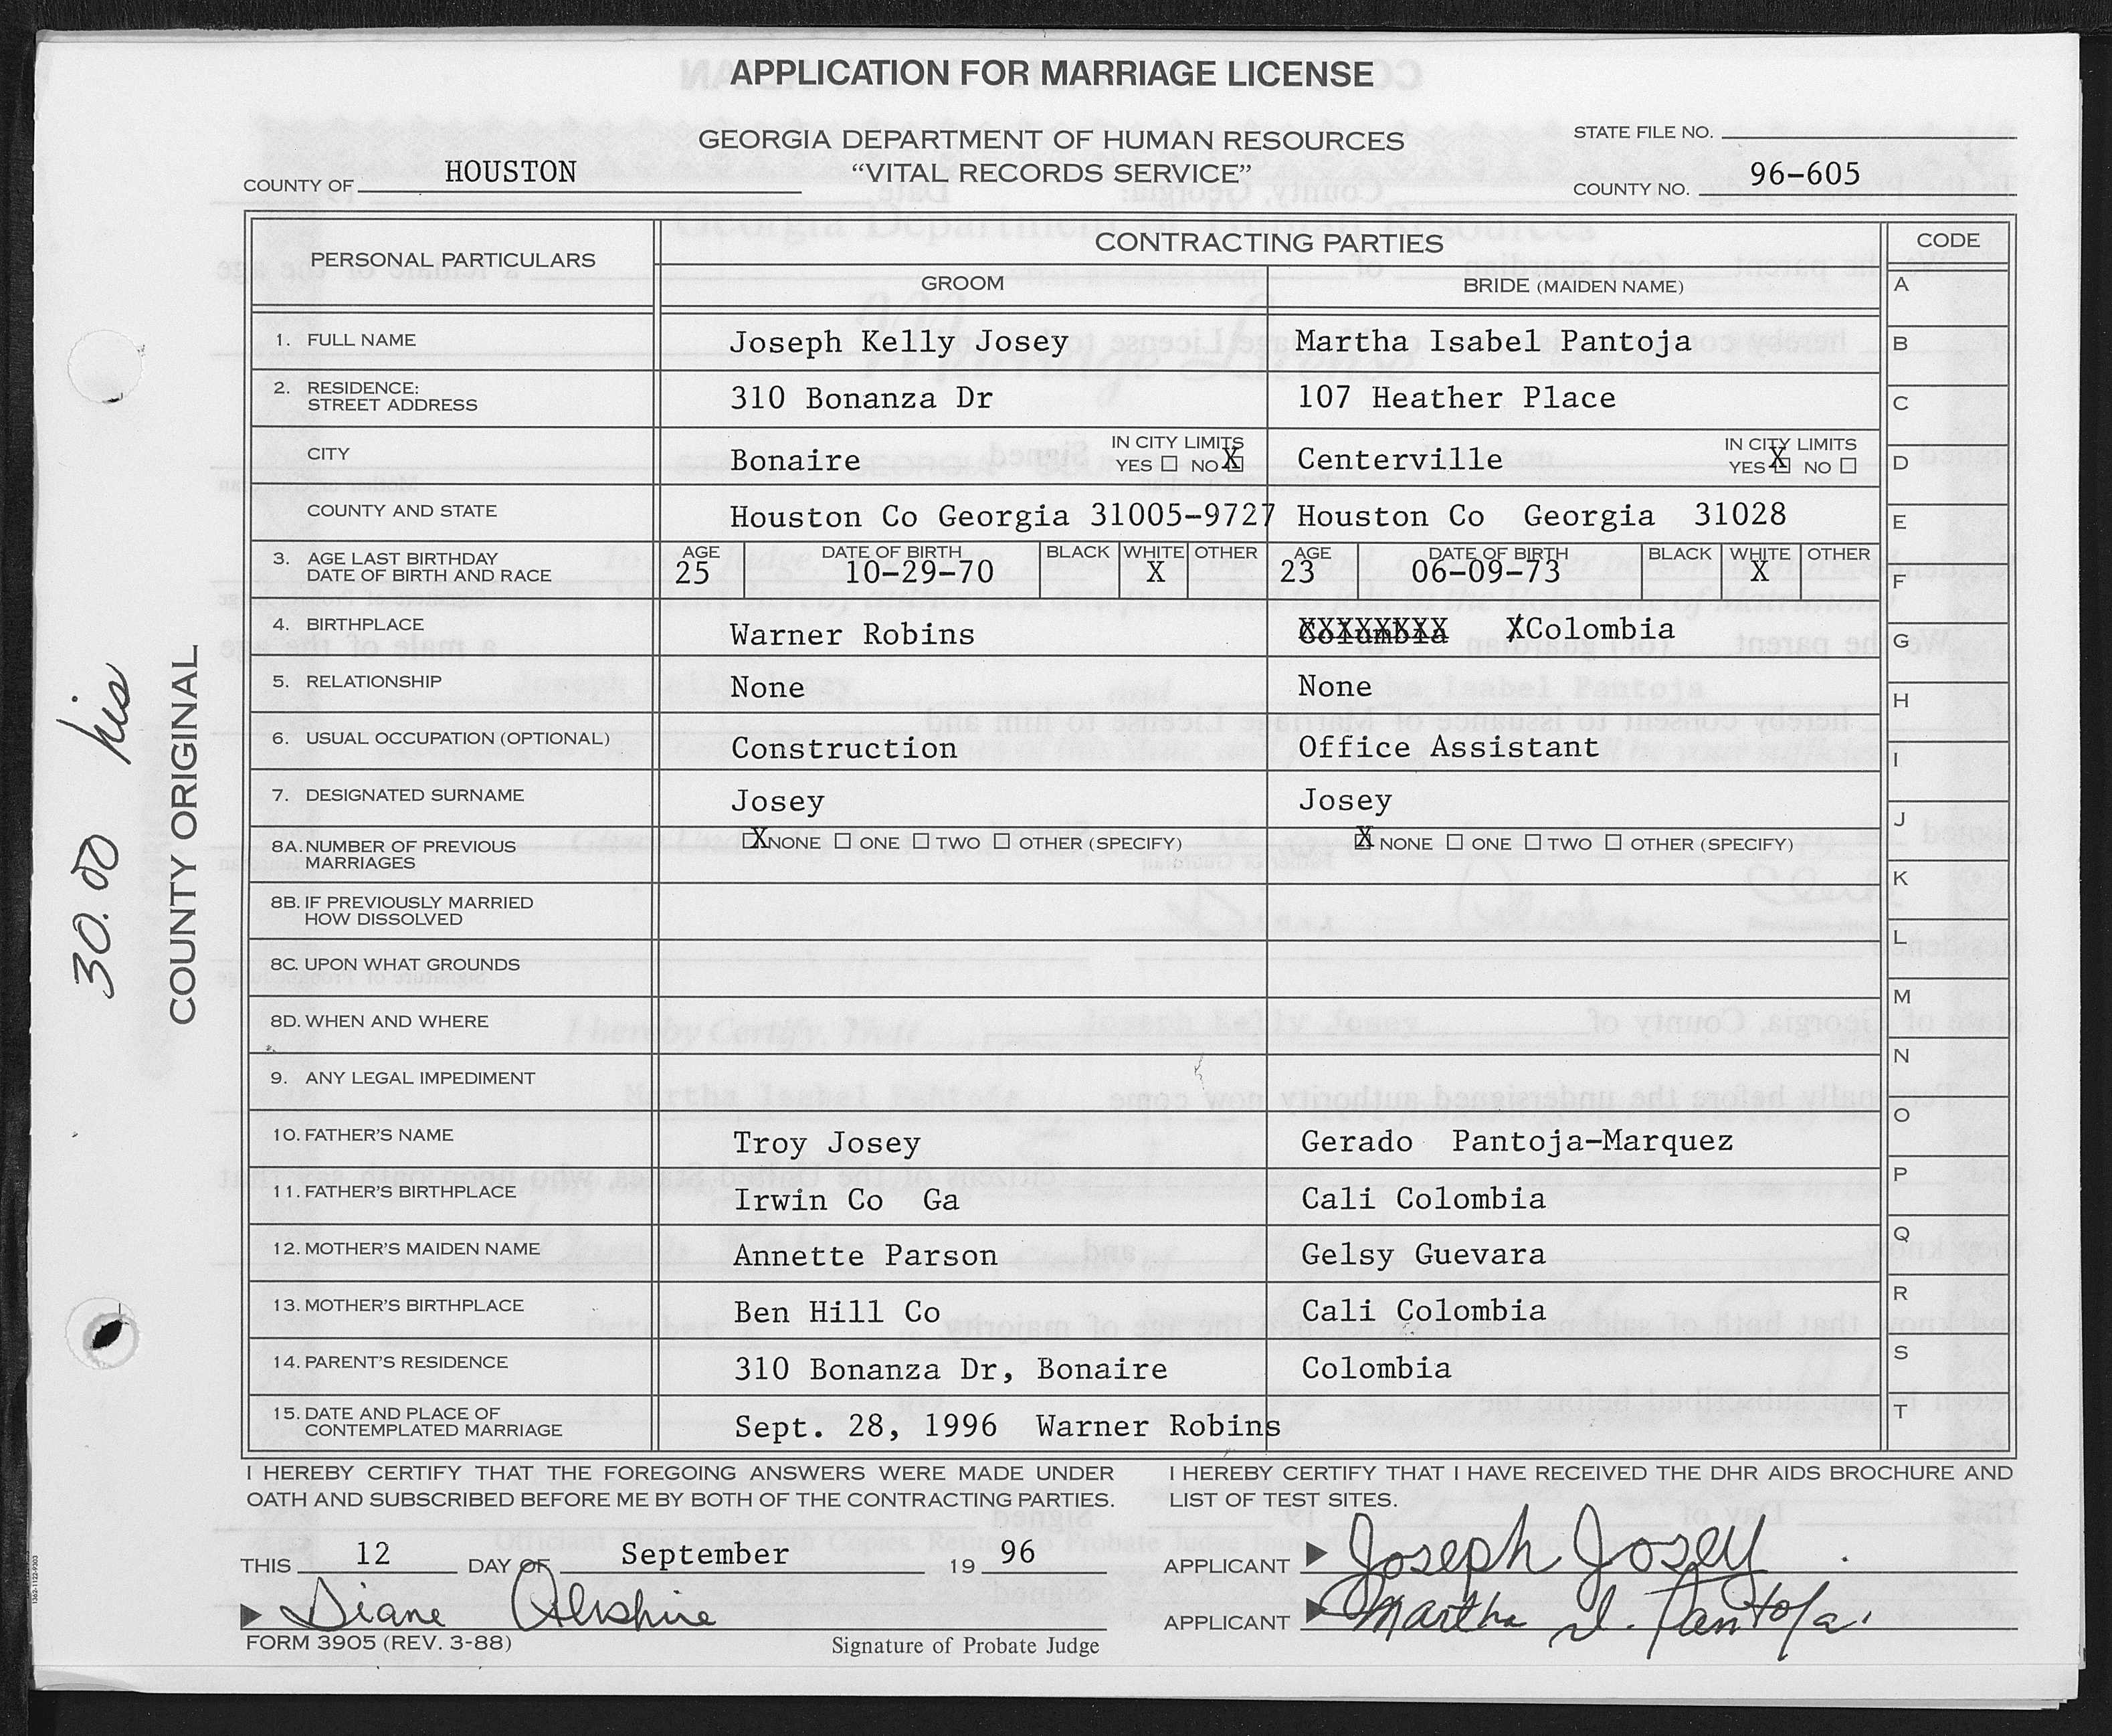 APPLICATION FOR MARRIAGE LICENSE
GEORGIA DEPARTMENT OF HUMAN RESOURCES
"VITAL RECORDS SERVICE"
COUNTY OF HOUSTON
STATE FILE NO.
COUNTY NO. 96-605
PERSONAL PARTICULARS
CONTRACTING PARTIES
CODE
GROOM
BRIDE (MAIDEN NAME)
A
1. FULL NAME Joseph Kelly Josey Martha Isabel Pantoja B
2. RESIDENCE:
STREET ADDRESS 310 Bonanza Dr 107 Heather Place C
CITY Bonaire IN CITY LIMITS YES ☐ NO X Centerville IN CITY LIMITS YES X NO ☐ D
COUNTY AND STATE Houston Co Georgia 31005-9727 Houston Co Georgia 31028 E
3. AGE LAST BIRTHDAY AGE DATE OF BIRTH BLACK WHITE OTHER AGE DATE OF BIRTH BLACK WHITE OTHER
DATE OF BIRTH AND RACE 25 10-29-70 X 23 06-09-73 X F
4. BIRTHPLACE Warner Robins Columbia XColombia G
5. RELATIONSHIP None None H
6. USUAL OCCUPATION (OPTIONAL) Construction Office Assistant I
7. DESIGNATED SURNAME Josey Josey J
8A. NUMBER OF PREVIOUS
MARRIAGES X NONE ☐ ONE ☐ TWO ☐ OTHER (SPECIFY) X NONE ☐ ONE ☐ TWO ☐ OTHER (SPECIFY)
K
8B. IF PREVIOUSLY MARRIED
HOW DISSOLVED
L
8C. UPON WHAT GROUNDS
M
8D. WHEN AND WHERE
N
9. ANY LEGAL IMPEDIMENT
O
10. FATHER'S NAME Troy Josey Gerado Pantoja-Marquez
P
11. FATHER'S BIRTHPLACE Irwin Co Ga Cali Colombia
Q
12. MOTHER'S MAIDEN NAME Annette Parson Gelsy Guevara
R
13. MOTHER'S BIRTHPLACE Ben Hill Co Cali Colombia
S
14. PARENT'S RESIDENCE 310 Bonanza Dr, Bonaire Colombia
T
15. DATE AND PLACE OF
CONTEMPLATED MARRIAGE Sept. 28, 1996 Warner Robins
I HEREBY CERTIFY THAT THE FOREGOING ANSWERS WERE MADE UNDER
OATH AND SUBSCRIBED BEFORE ME BY BOTH OF THE CONTRACTING PARTIES.
I HEREBY CERTIFY THAT I HAVE RECEIVED THE DHR AIDS BROCHURE AND
LIST OF TEST SITES.
THIS 12 DAY OF September 19 96
APPLICANT Joseph Josey
Diane
APPLICANT Martha I. Pantoja
FORM 3905 (REV. 3-88)
Signature of Probate Judge
COUNTY ORIGINAL
30.00 his